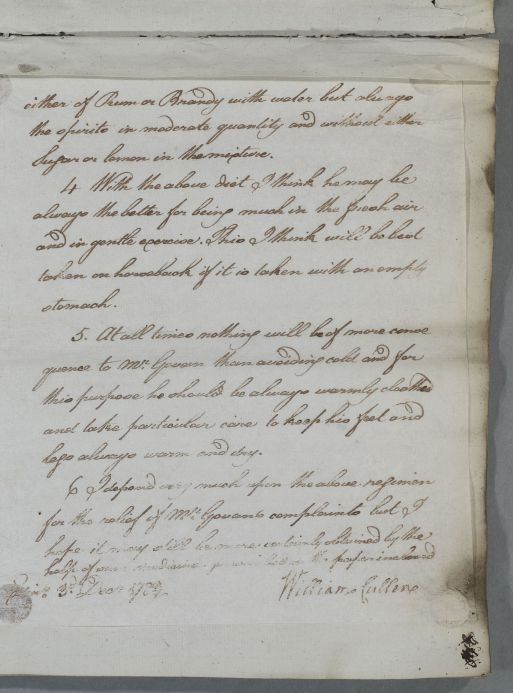 either of Rum or Brandy with water but always
the spirits in moderate quantity and without either
Sugar or lemon in the mixture.
4 With the above diet I think he may be
always the better for being much in the fresh air
and in gentle exercise. This I think will be best
taken on horseback if it is taken with an empty
stomach.
5. At all times nothing will be of more conse
quence to Mr. Govan than avoiding cold and for
this purpose he should be always warmly cloathed
and take particular care to keep his feet and
legs always warm and dry.
6 I depend very much upon the above regimen
for the relief of Mr. Govans complaints but I
hope it may still be more certainly obtained by the
help of some medicine prescribed on the paper inclosed
3d. Decr.
William Cullen